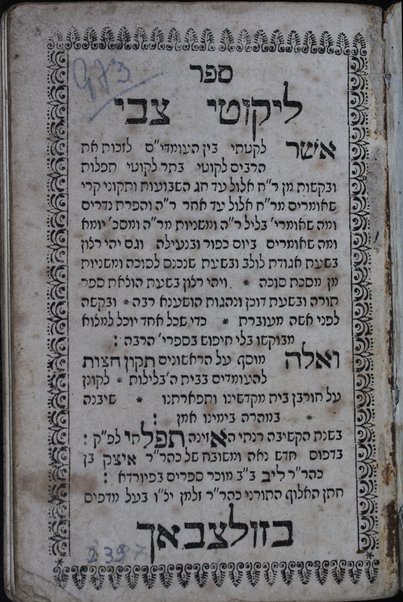 983
ספר
ליקוטי צבי
אשר לקטתי בין העומרי"ם לזכות את
הרבים לקוטי בתר לקוטי תפלות
ובקשות מן ר"ח אלול עד חג השבועות ותקוני קרי
שאומרים מר"ח אלול עד אחר ר"ה והפרת נדרים
ומה שאומרי' בליל ר"ה ומשניות מר"ה ומסכ' יומא
ומה שאומרים ביום כפור ובנעילה וגם יהי רצון
בשעת אגודת לולב ובשעת שנכנס לסוכה ומשניות
מן מסכת סוכה * ויהי רצון בשעת הוצאת ספר
תורה ובשעת דוכן ונהגות הושענא רבה * ובקשה
לפני אשה מעוברת * כדי שכל אחד יוכל למלוא
מבוקשו בלי חיפוש בספרי' הרבה :
ואלה מוסף על הראשונים תקון חצות
להעומדים בבית ה' בלילות * לקונן
על חורבן בית מקדשינו ותפארתנו * שיבנה
במהרה בימינו אמן :
בשנת הקשיבה רנתי האזינה תפלתי לפ"ק :
בדפוס חדש נאה ומשובח של כהר"ר איצק בן
כהר"ר ליב ב"ב מוכר ספרים בפיורדא :
חתן האלוף התורני כהר"ר זלמן יצ"ו בעל מדפיס
בזולצבאך
239